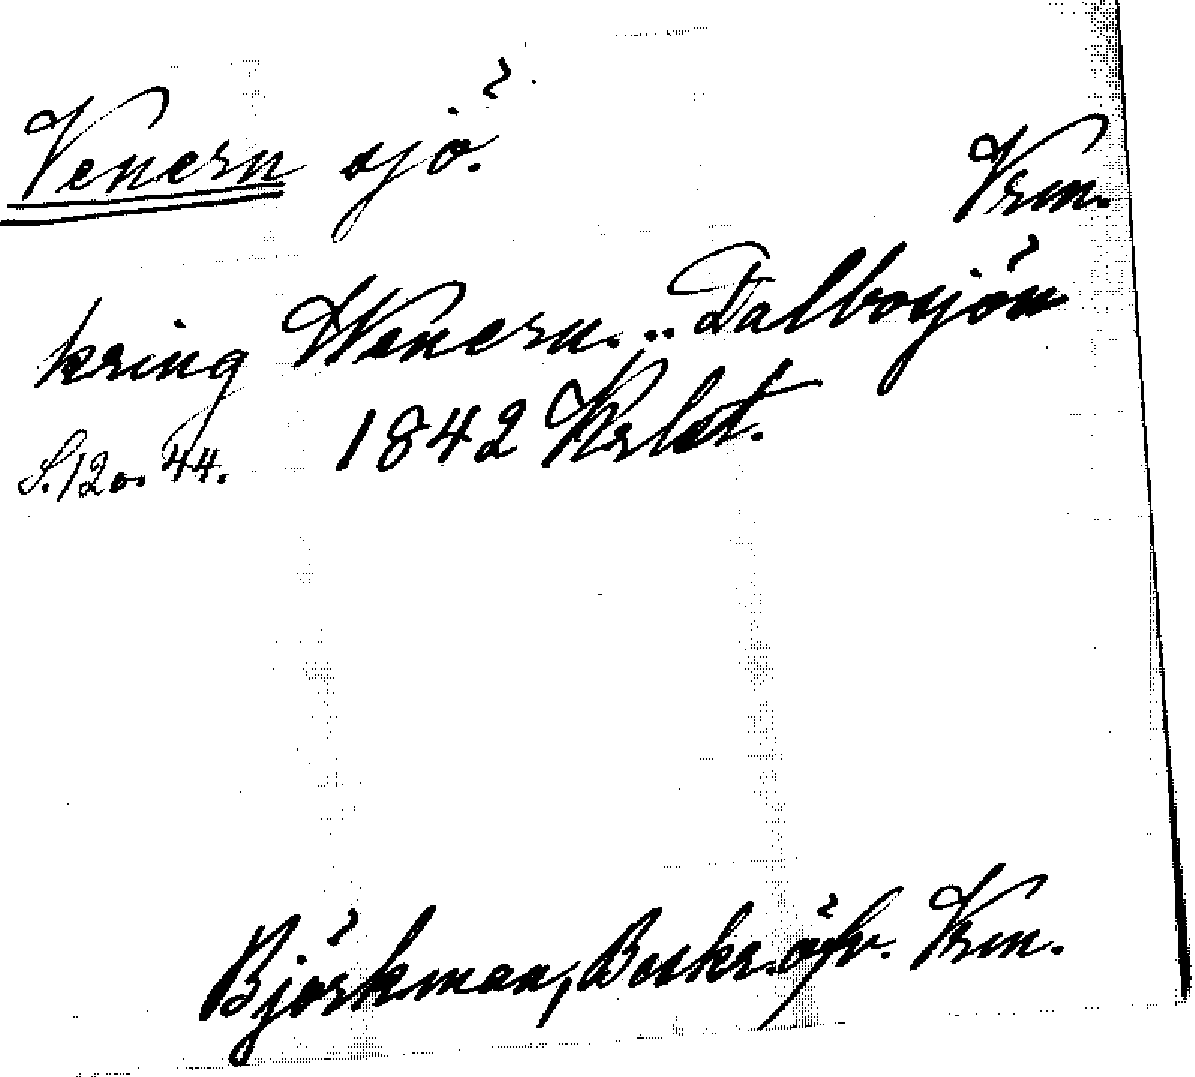 Venern sjö.
Vrm.
kring Wenern... Dalbosjön
S.12 o. 44. 1842 Krlst.
Björkman, Beskr. öfv. Vrm.